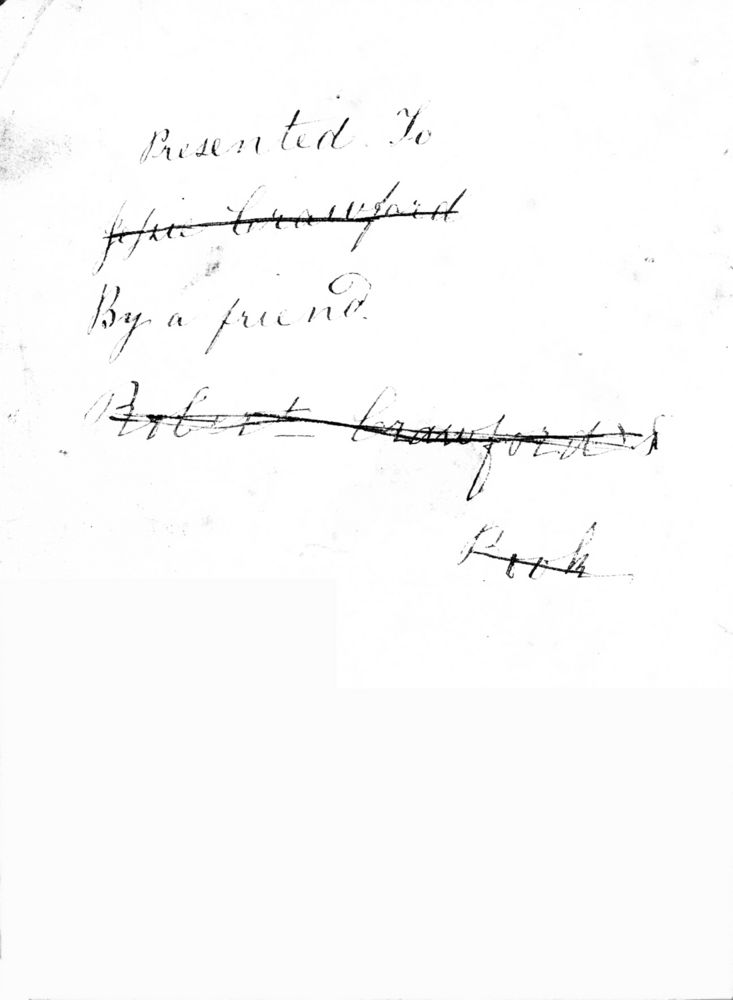 Presented To
Jessie Crawford
By a friend
Robert Crawford's
Book